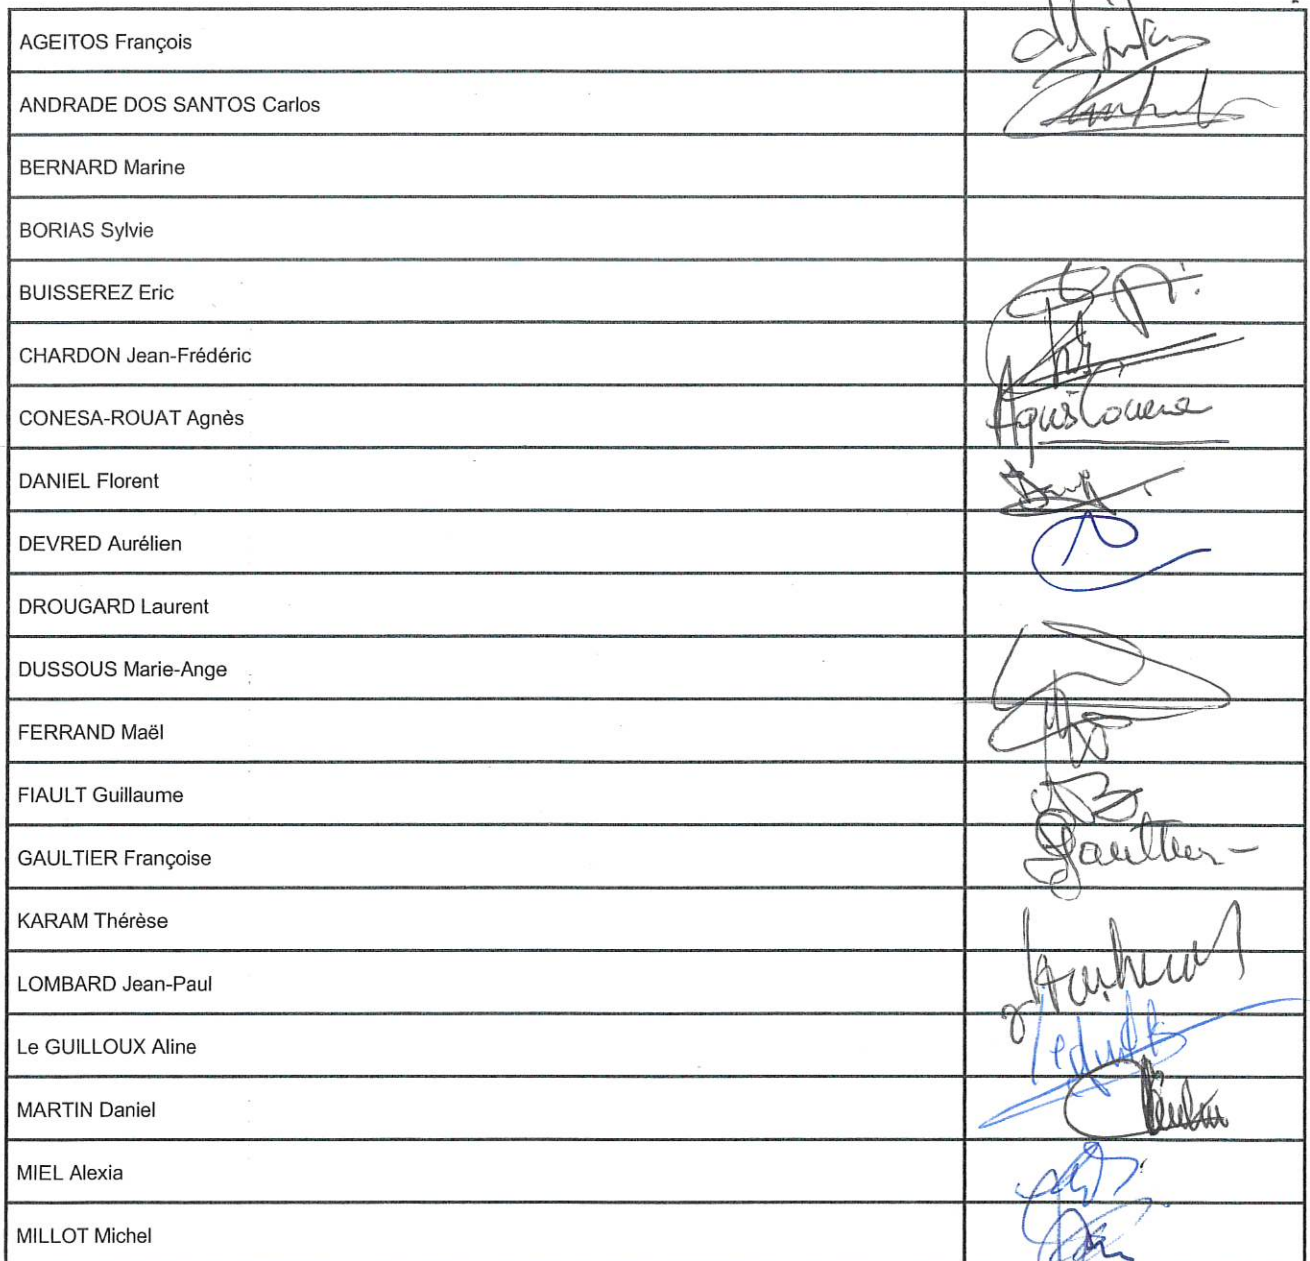 AGEITOS François
ANDRADE DOS SANTOS Carlos
BERNARD Marine
BORIAS Sylvie
BUISSEREZ Eric
CHARDON Jean-Frédéric
CONESA-ROUAT Agnès
DANIEL Florent
DEVRED Aurélien
DROUGARD Laurent
DUSSOUS Marie-Ange
FERRAND Maël
FIAULT Guillaume
GAULTIER Françoise Gaultier
KARAM Thérèse
LOMBARD Jean-Paul
Le GUILLOUX Aline
MARTIN Daniel
MIEL Alexia
MILLOT Michel